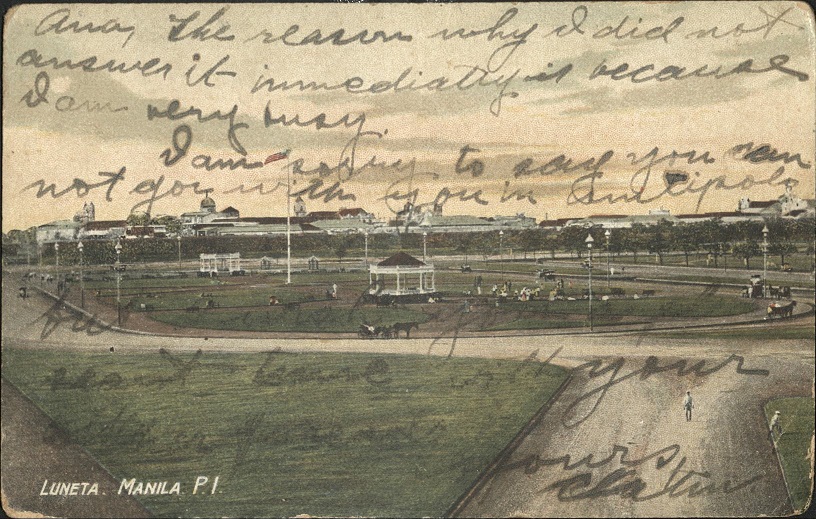 Ana, The reason why I did not
answer it immediatly is because
I am very busy.
I am sorry to say you can
not go with you in Antipolo
but
next time with your
yours
LUNETA. MANILA. P.I.